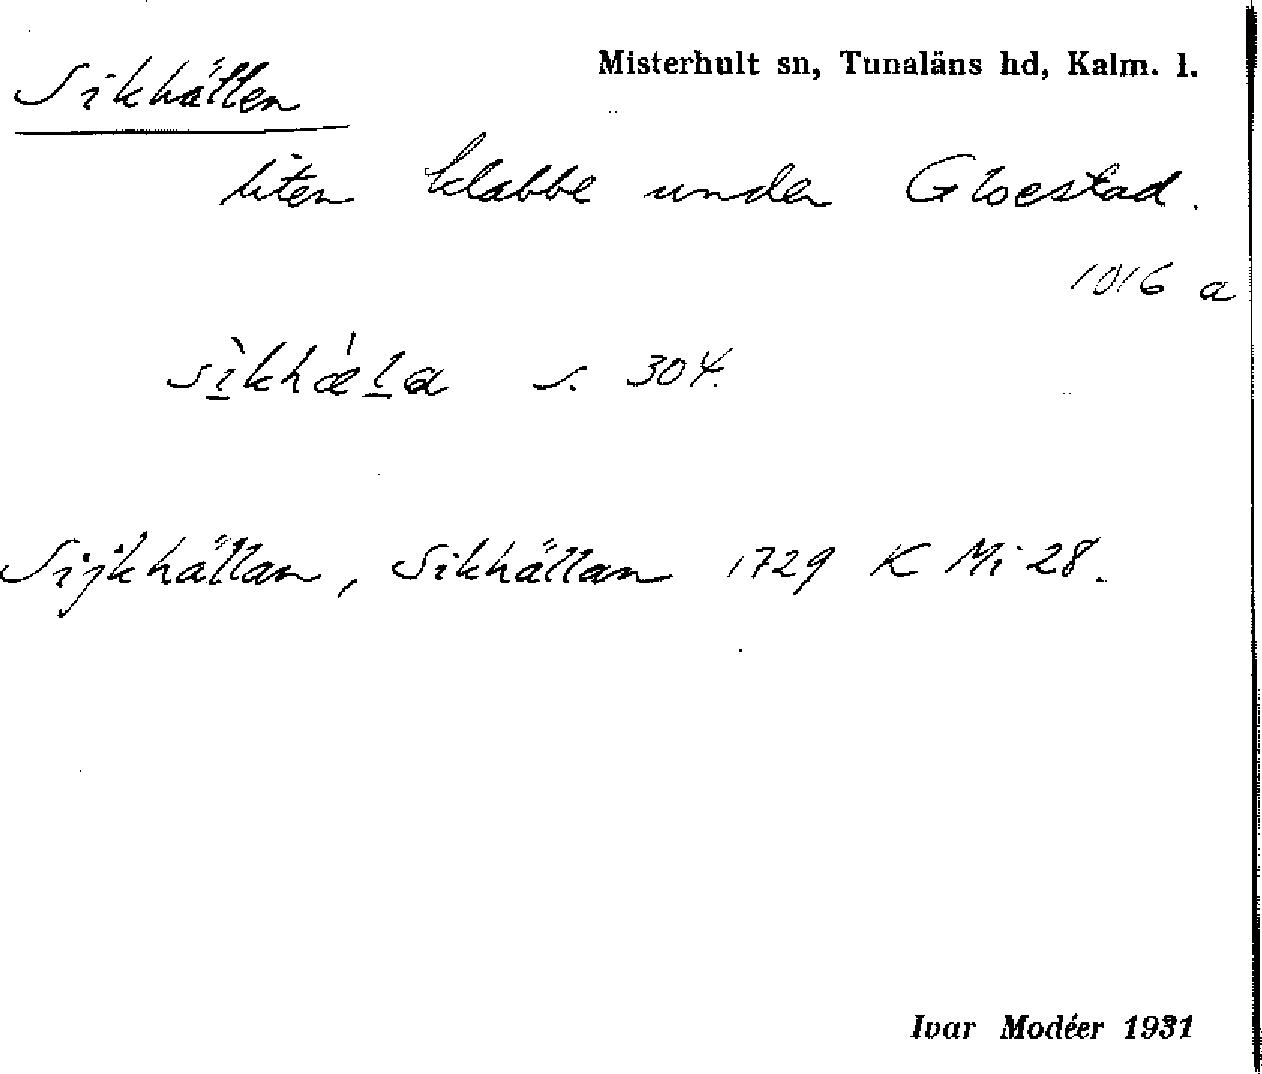 Misterhult sn, Tunaläns hd, Kalm. l.
Sikhällen
liten klabbe under Gloestad.
1016 a
s. 304.
Sijkhällan, Sikhällan 1729 K Mi 28.
Ivar Modéer 1931